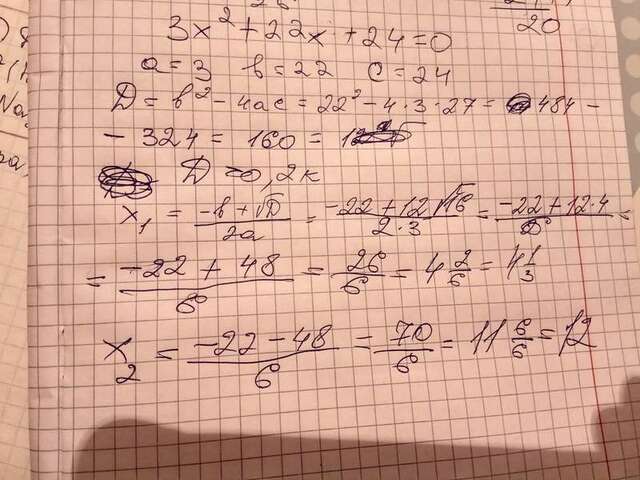 20
3x² + 22x + 24 = 0
a = 3 b = 22 c = 24
D = b² - 4ac = 22² - 4·3·27 = 484 -
- 324 = 160 =
D > 0, 2к
x₁ = (-b + √D)/2a = (-22 + 12√16)/(2·3) = (-22 + 12·4)/6 =
= (-22 + 48)/6 = 26/6 = 4 2/6 = 4 1/3
x₂ = (-22 - 48)/6 = 70/6 = 11 6/6 = 12